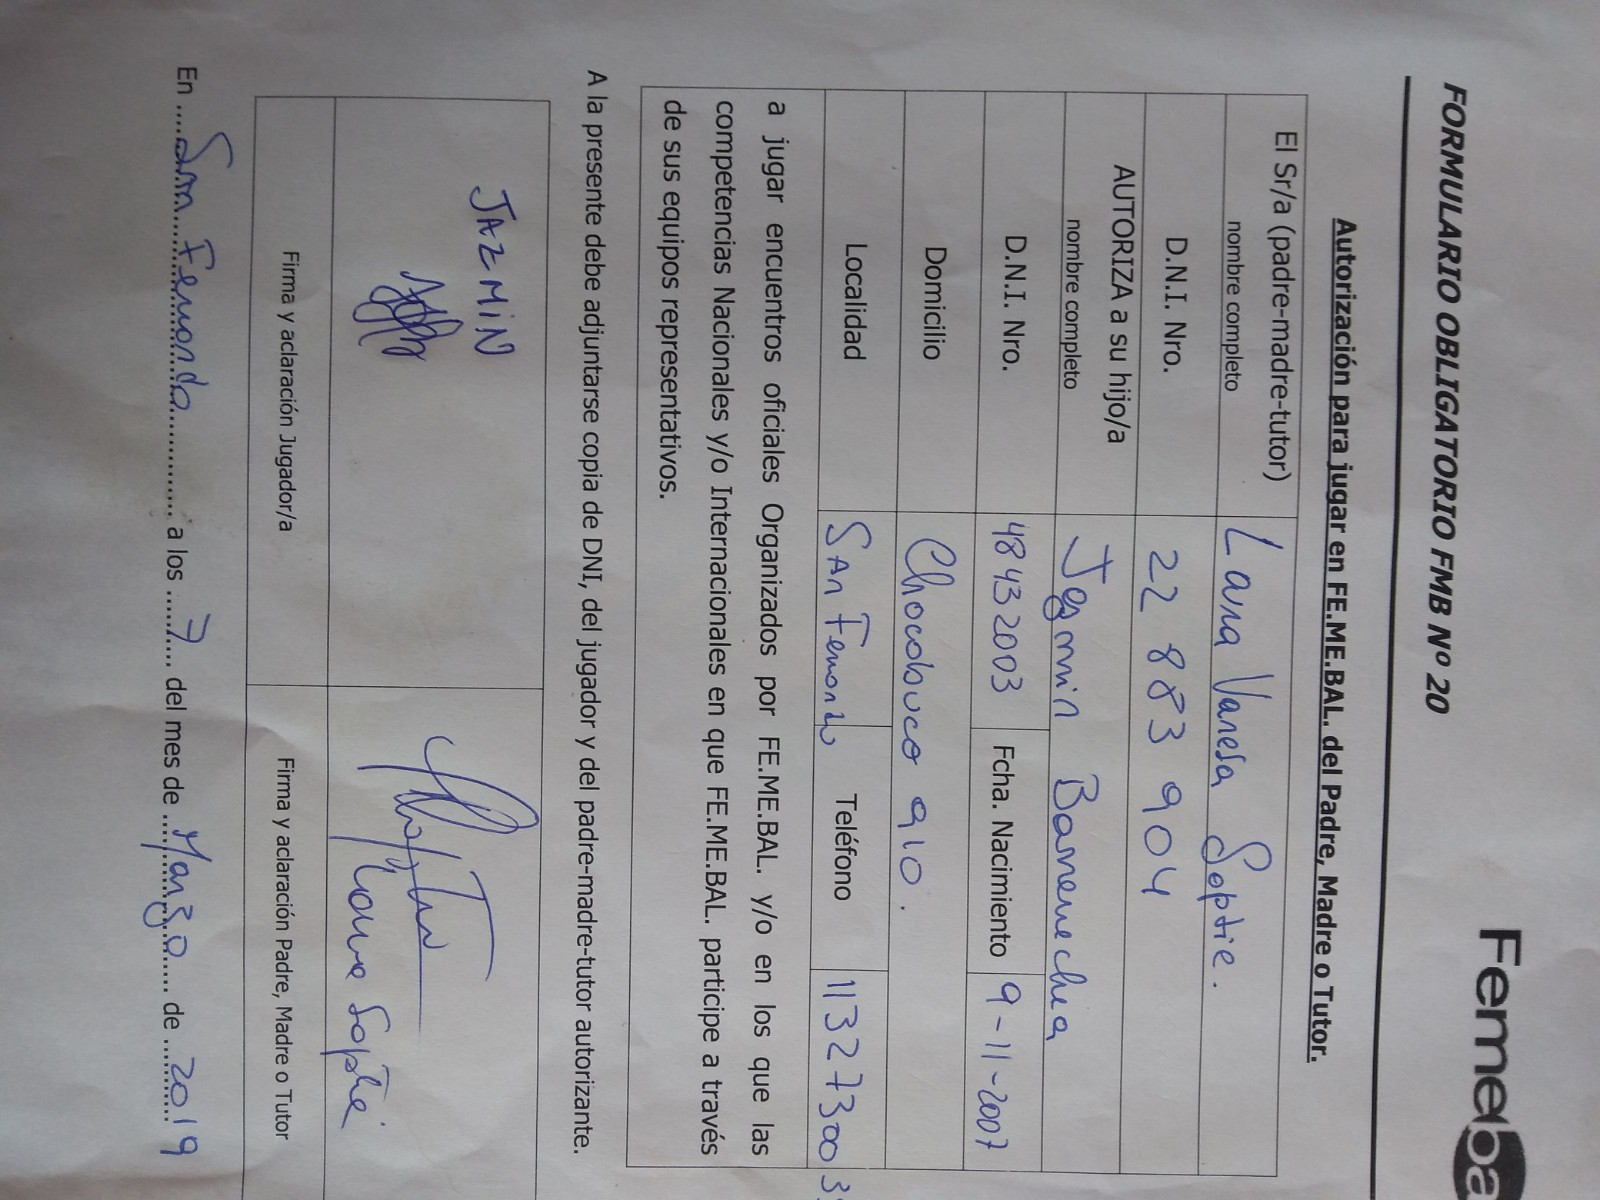 Femeba
FORMULARIO OBLIGATORIO FMB Nº 20
Autorización para jugar en FE.ME.BAL. del Padre, Madre o Tutor.
El Sr/a (padre-madre-tutor)
nombre completo
Lara Vanesa Soptie.
D.N.I. Nro. 22 883 904
AUTORIZA a su hijo/a
nombre completo
Jazmin Barrenechea
D.N.I. Nro. 48432003 Fcha. Nacimiento 9-11-2007
Domicilio Chacabuco 910.
Localidad SAn Fernando Teléfono 11327300
a jugar encuentros oficiales Organizados por FE.ME.BAL. y/o en los que las
competencias Nacionales y/o Internacionales en que FE.ME.BAL. participe a través
de sus equipos representativos.
A la presente debe adjuntarse copia de DNI, del jugador y del padre-madre-tutor autorizante.
JAZMiN
Lara Soptie
Firma y aclaración Jugador/a Firma y aclaración Padre, Madre o Tutor
En ....San Fernando............ a los ....7.... del mes de ....Marzo.... de ....2019